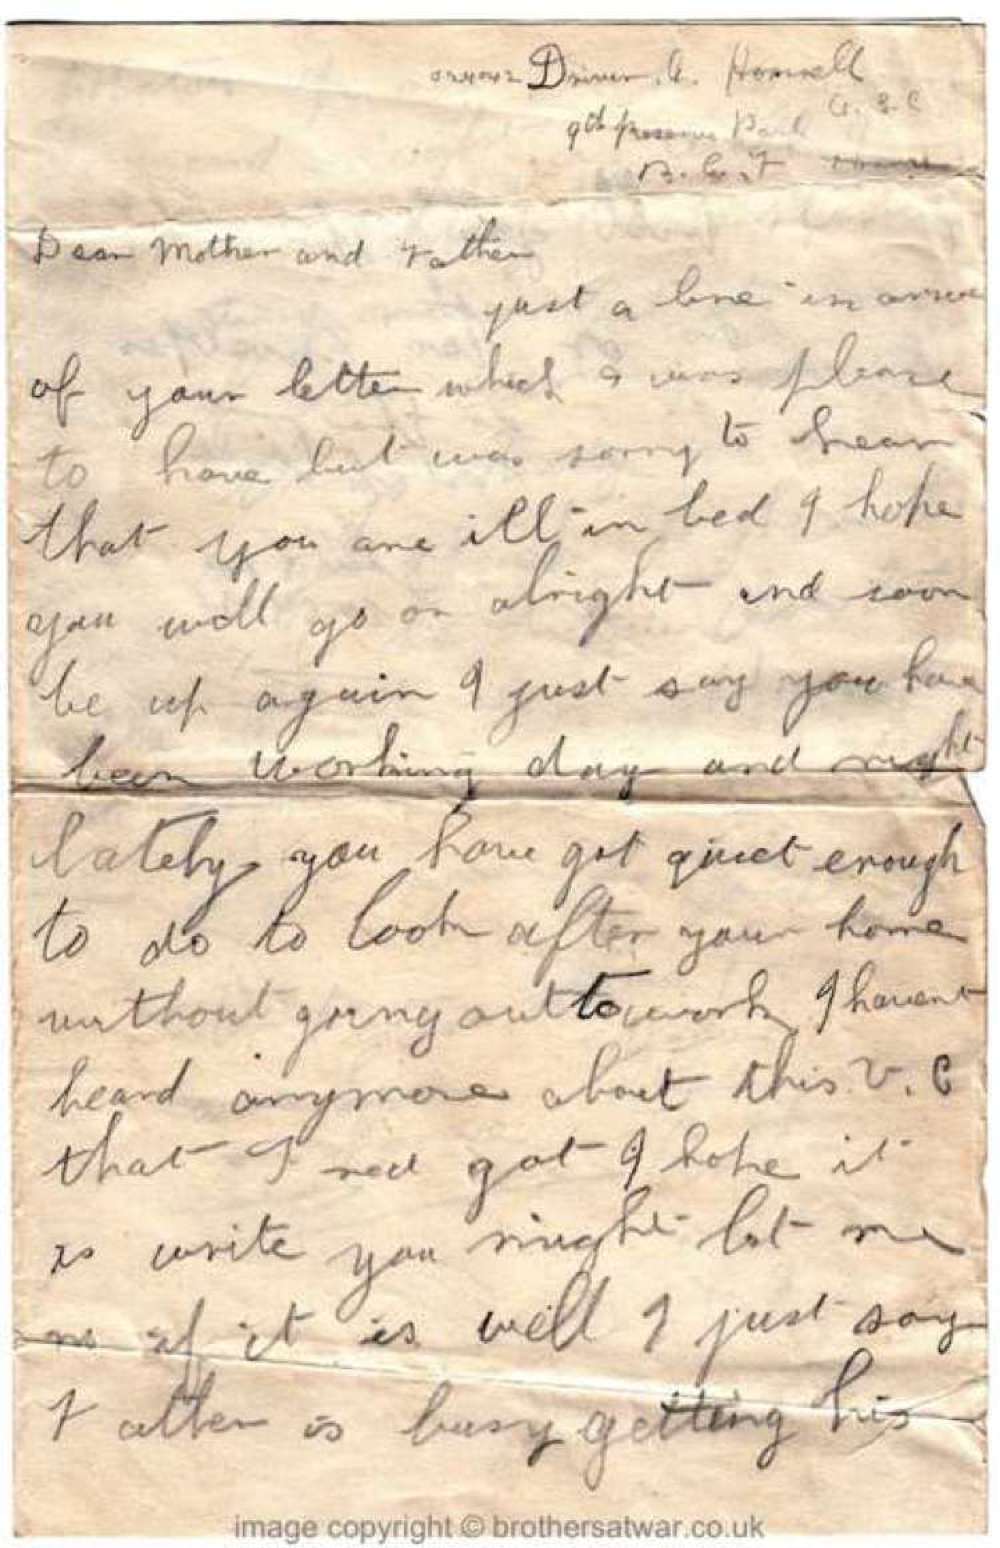 024042 Driver A. Homwell
A. S. C
9th Reserve Park
B. E. F
Dear Mother and Father
just a line in answe
of your letter which I was please
to have but was sorry to hear
that you are ill in bed I hope
you will go on alright and soon
be up again I just say you have
been working day and night
lately you have got quiet enough
to do to look after your home
without going out to work I havent
heard anymore about this V. C
that F red got I hope it
is write you might let me
no if it is well I just say
Father is busy getting his
image copyright © brothersatwar.co.uk